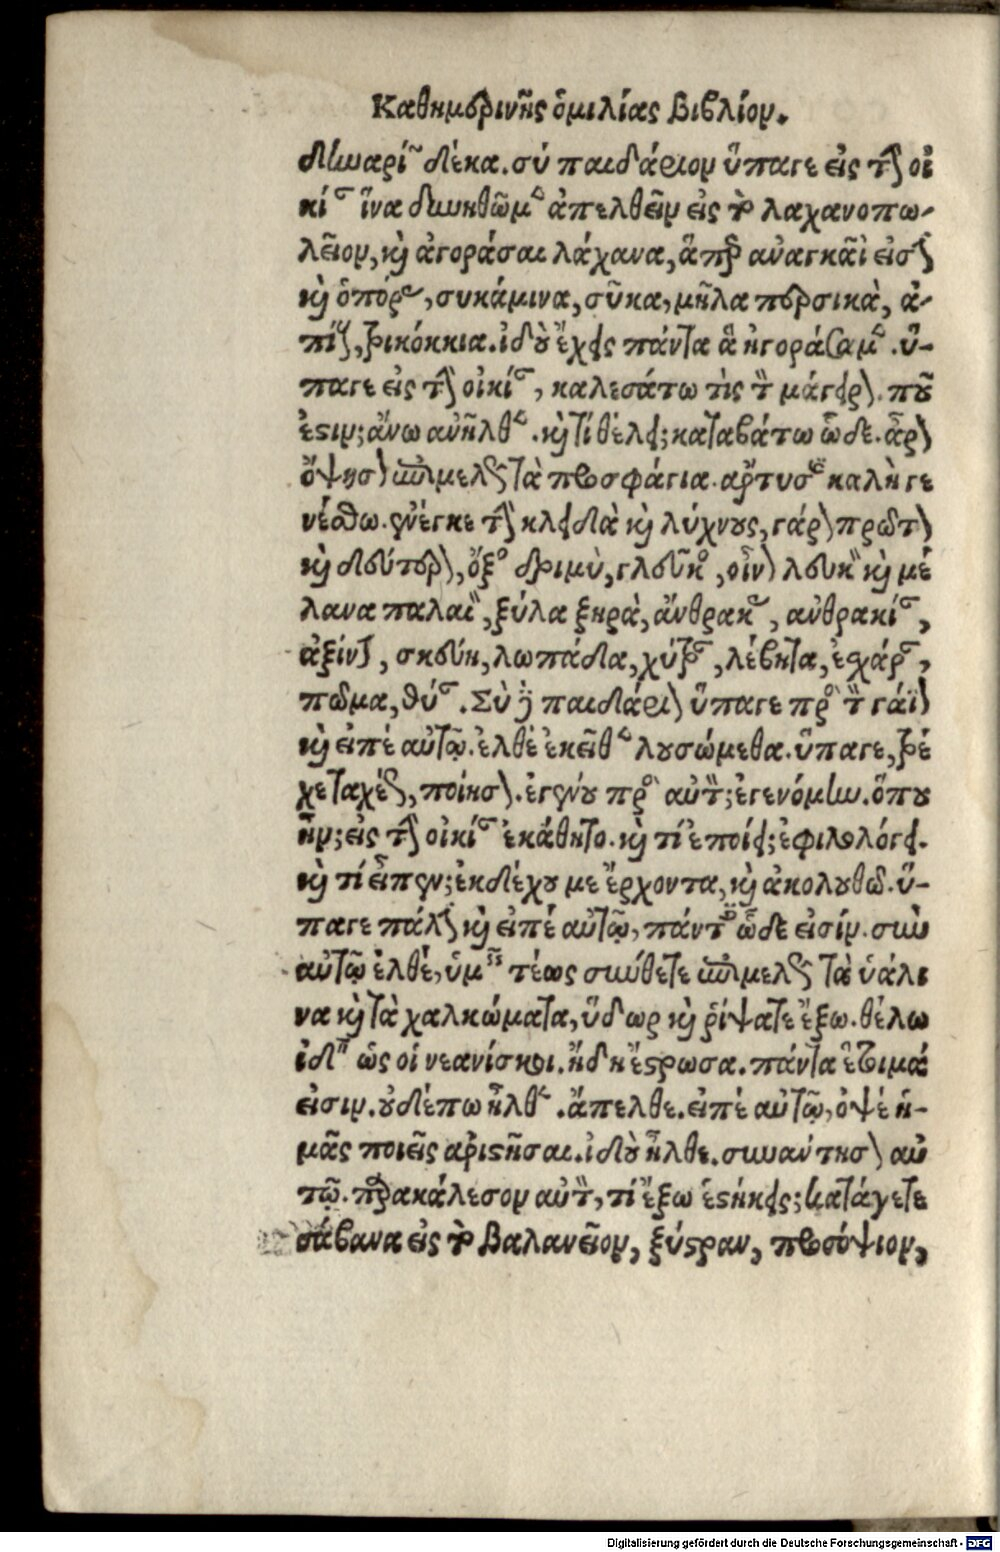 Καθημερινῆς ὁμιλίας βιβλίον.
δηναρίων δέκα. σύ παιδάριον ὕπαγε εἰς τὴν οἰ
κίαν ἵνα δυνηθῶμεν ἀπελθεῖν εἰς τὸ λαχανοπω-
λεῖον, καὶ ἀγοράσαι λάχανα, ἅπερ ἀναγκαῖά εἰσιν
καὶ ὀπόρας, συκάμινα, σῦκα, μῆλα περσικὰ, ἀ-
πίδιν, τρικόκκια. ἰδοὺ ἔχεις πάντα ἃ ἠγοράσαμεν. ὕ-
παγε εἰς τὴν οἰκίαν, καλεσάτω τὶς τὸν μάγειρον. ποῦ
ἐστιν; ἄνω ἀνῆλθεν. καὶ τί θέλει; καταβάτω ὧδε. ἆρον
ὄψησον ἐπιμελῶς τὰ προσφάγια. ἄρτυσις καλὴ γε
νέσθω. ἔνεγκε τὴν κλεῖδα καὶ λύχνους, γάρον πρῶτον
καὶ δεύτερον, ὄξος δριμὺ, γλευκος, οἶνον λευκὸν καὶ μέ
λανα παλαιὸν, ξύλα ξηρὰ, ἄνθρακας, ἀνθρακίαν,
ἀξίνην, σκεύη, λωπάδια, χύτρας, λέβητα, ἐσχάραν,
πῶμα, θύαν. Σὺ δὲ παιδάριον ὕπαγε πρὸς τὸν γάϊον
καὶ εἰπὲ αὐτῷ. ἐλθὲ ἐκεῖθεν λουσώμεθα. ὕπαγε, τρέ
χε ταχέως, ποίησον. ἐγένου πρὸς αὐτόν; ἐγενόμην. ὅπου
ἦν; εἰς τὴν οἰκίαν ἐκάθητο. καὶ τί ἐποίει; ἐφιλολόγει.
καὶ τί εἶπεν; ἐκδέχου με ἔρχοντα, καὶ ἀκολουθῶ. ὕ-
παγε πάλιν καὶ εἰπὲ αὐτῷ, πάντες ὧδε εἰσίν. σὺν
αὐτῷ ἐλθέ, ὑμεῖς τέως σύνθετε ἐπιμελῶς τὰ ὑάλι
να καὶ τὰ χαλκώματα, ὕδωρ καὶ ῥίψατε ἔξω. θέλω
ἰδεῖν ὡς οἱ νεανίσκοι. ἤδη ἔστρωσα. πάντα ἕτοιμά
εἰσιν. οὐδέπω ἦλθεν. ἄπελθε. εἰπὲ αὐτῷ, ὀψὲ ἡ-
μᾶς ποιεῖς ἀριστῆσαι. ἰδοὺ ἦλθε. συναύτησον αὐ
τῷ. παρακάλεσον αὐτὸν, τί ἔξω ἑστήκεις; κατάγετε
σάβανα εἰς τὸ βαλανεῖον, ξύστραν, προσόψιον,
Digitalisierung gefördert durch die Deutsche Forschungsgemeinschaft - DFG